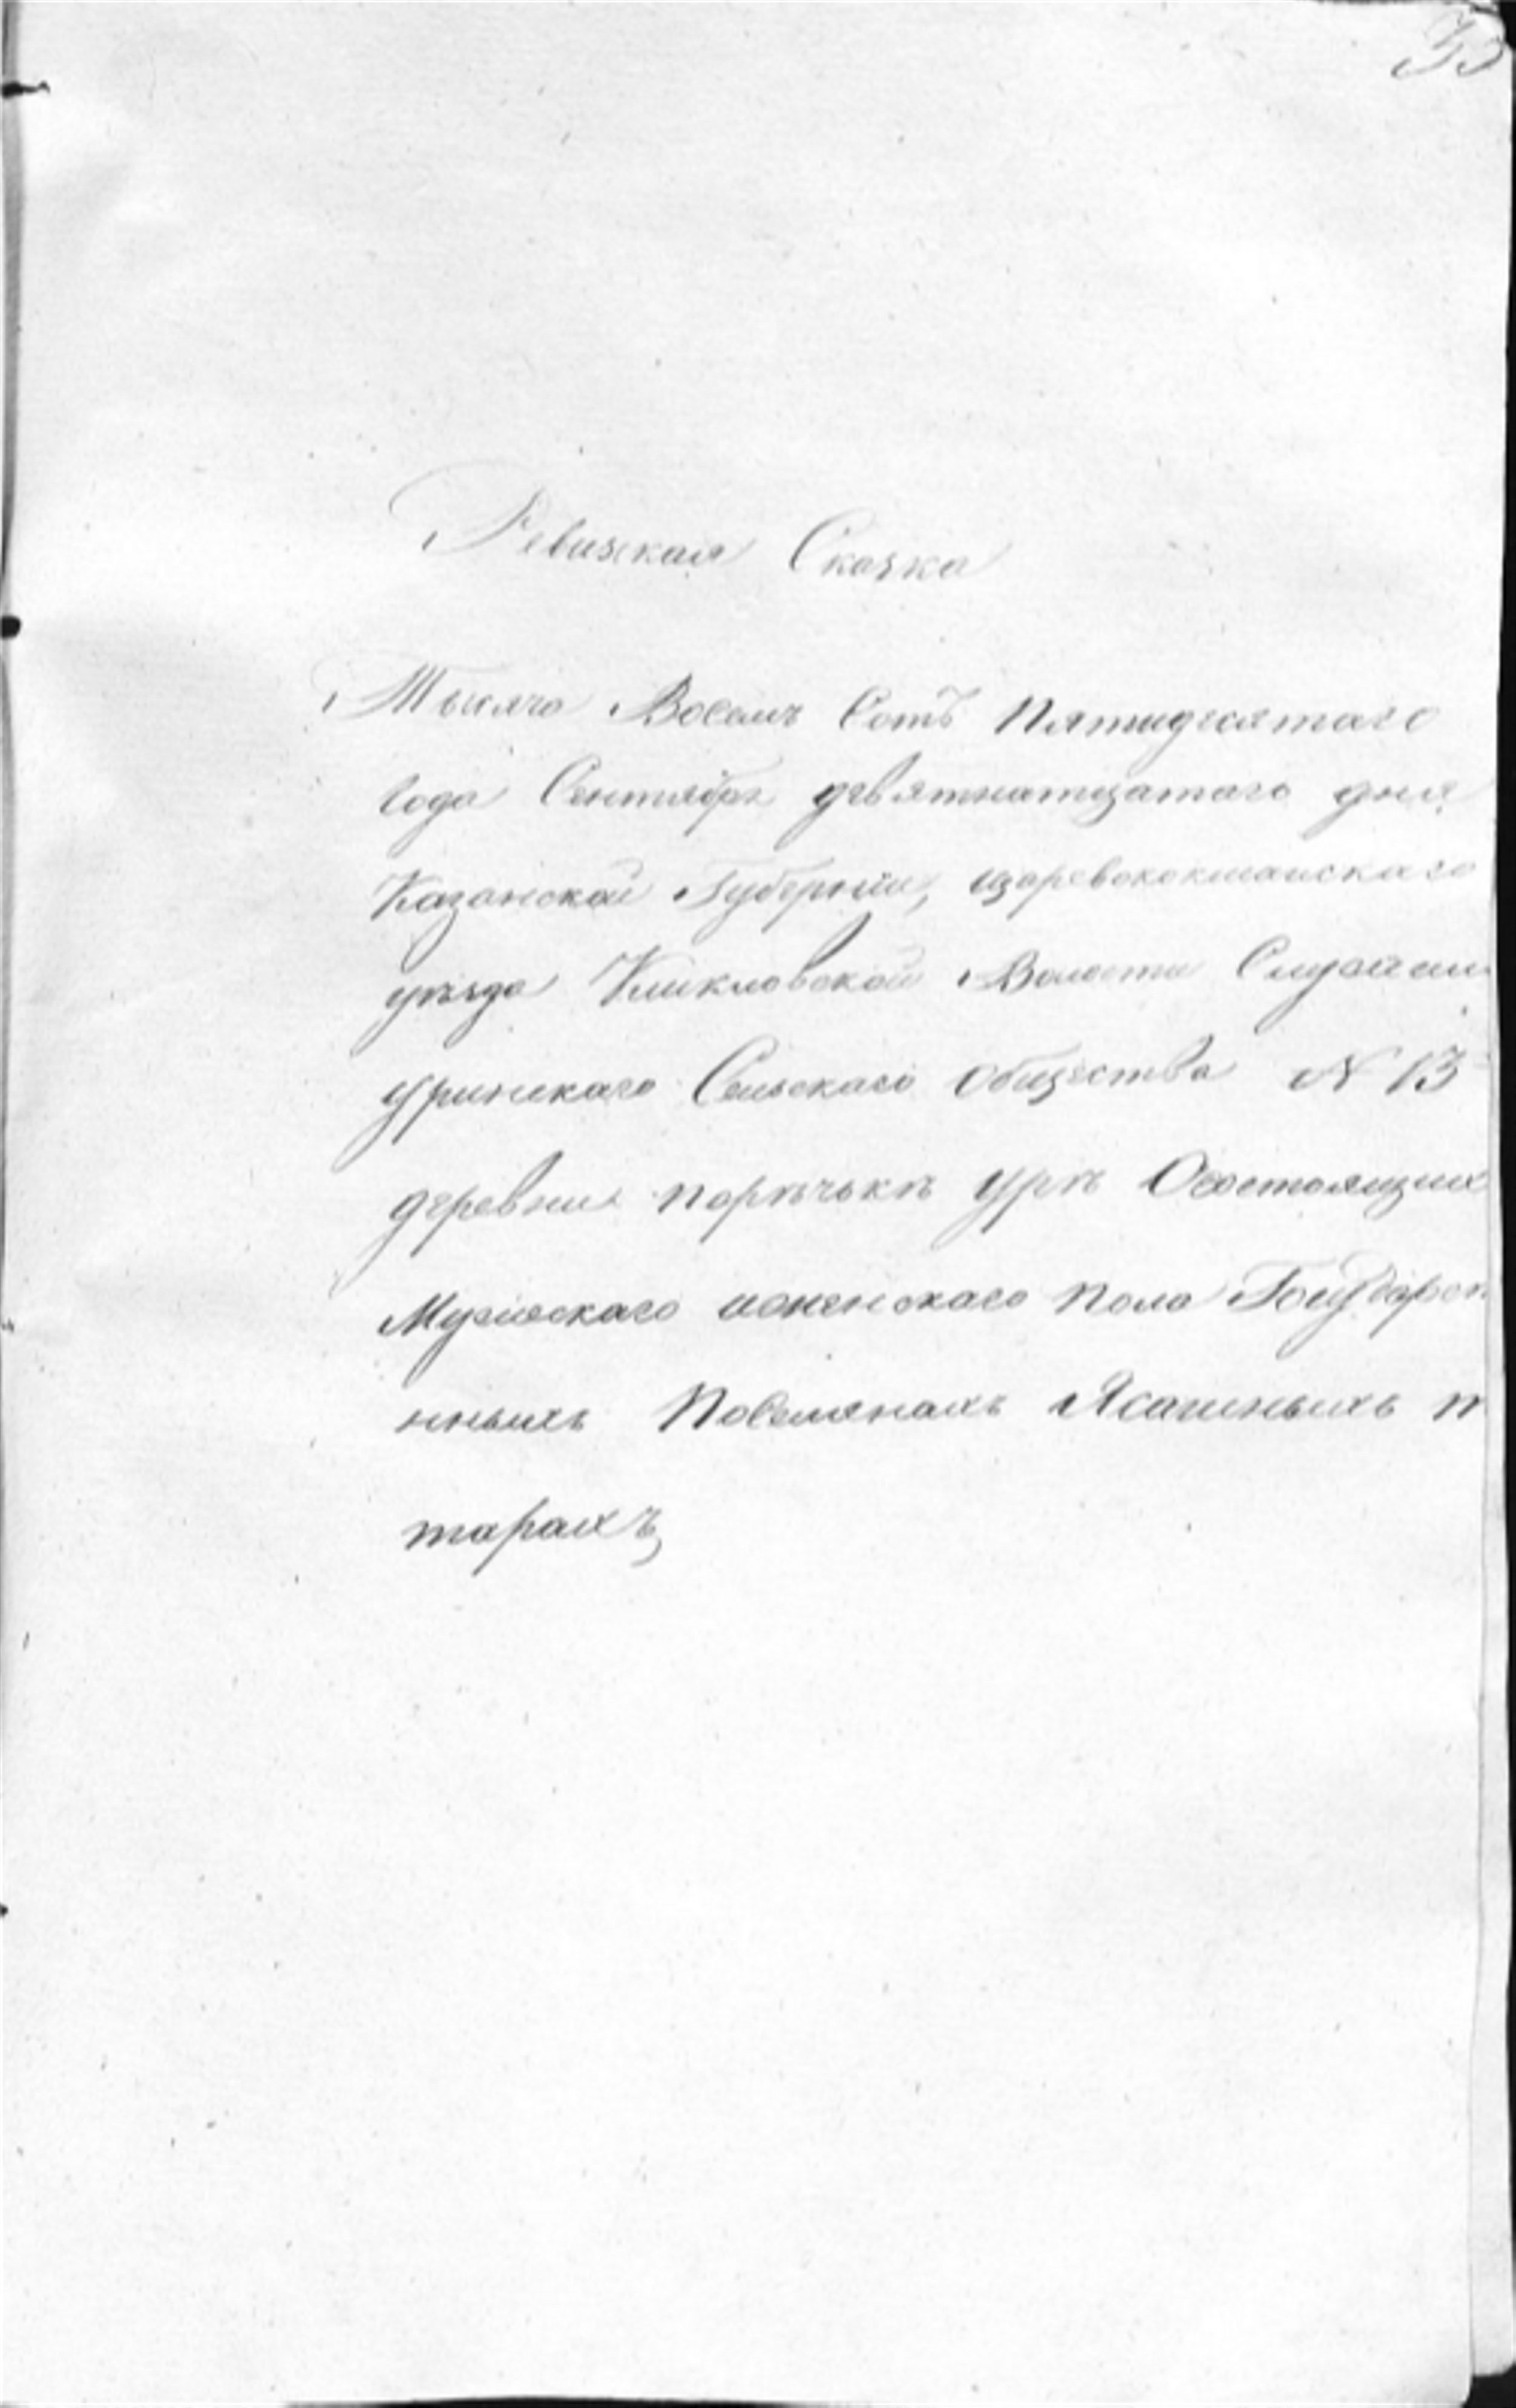 Ревизская Сказка
Тысяча Восемъ Сотъ Пятидесятаго
Года Сентября девятнатцатаго дня
Казанской Губерніи, царевококшаискаго
уѣзда Кшкловской Волости
уринскаго Сельскаго Общества № 13
деревни порѣчькѣ урѣ О Состоящих
Мужескаго иженскаго пола Государст
нныхъ Поселянахъ Ясашныхъ т
тарахъ